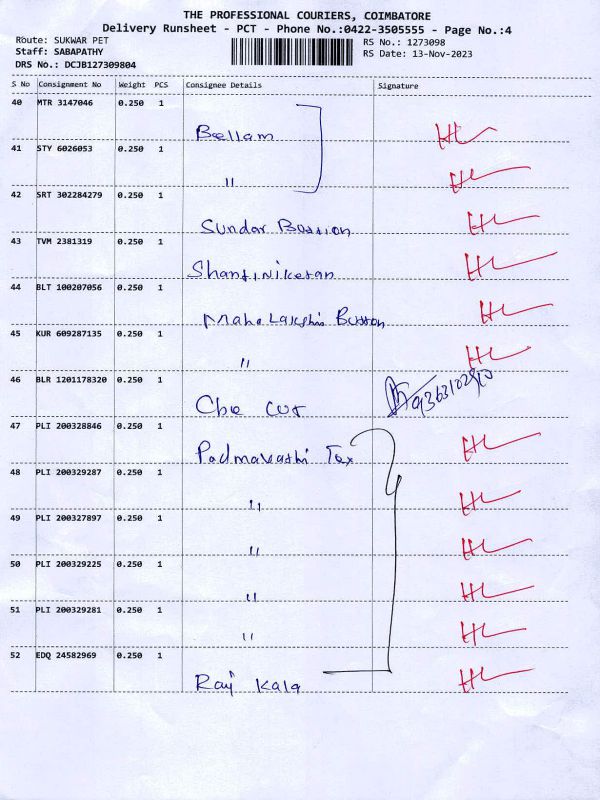 THE PROFESSIONAL COURIERS, COIMBATORE
Delivery Runsheet - PCT - Phone No.:0422-3505555 - Page No.:4
Route: SUKWAR PET
Staff: SABAPATHY
DRS No.: DCJB127309804
RS No.: 1273098
RS Date: 13-Nov-2023
S No Consignment No Weight PCS Consignee Details Signature
40 MTR 3147046 0.250 1
Bellam
41 STY 6026053 0.250 1
"
42 SRT 302284279 0.250 1
Sundar
43 TVM 2381319 0.250 1
Shantiniketan
44 BLT 100207056 0.250 1
Maha Lakshmi Button
45 KUR 609287135 0.250 1
"
46 BLR 1201178320 0.250 1
Cbe Cut
47 PLI 200328846 0.250 1
Padmavathi Tex
48 PLI 200329287 0.250 1
"
49 PLI 200327897 0.250 1
"
50 PLI 200329225 0.250 1
"
51 PLI 200329281 0.250 1
"
52 EDQ 24582969 0.250 1
Raj Kala